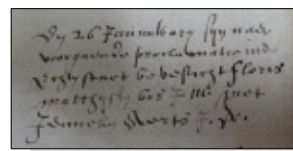 Dy 26 Januwary syn naer
voorgaende proclamatie inde
Echtestaet bevesticht Floris
Matthyss met
Jenneken Aerts